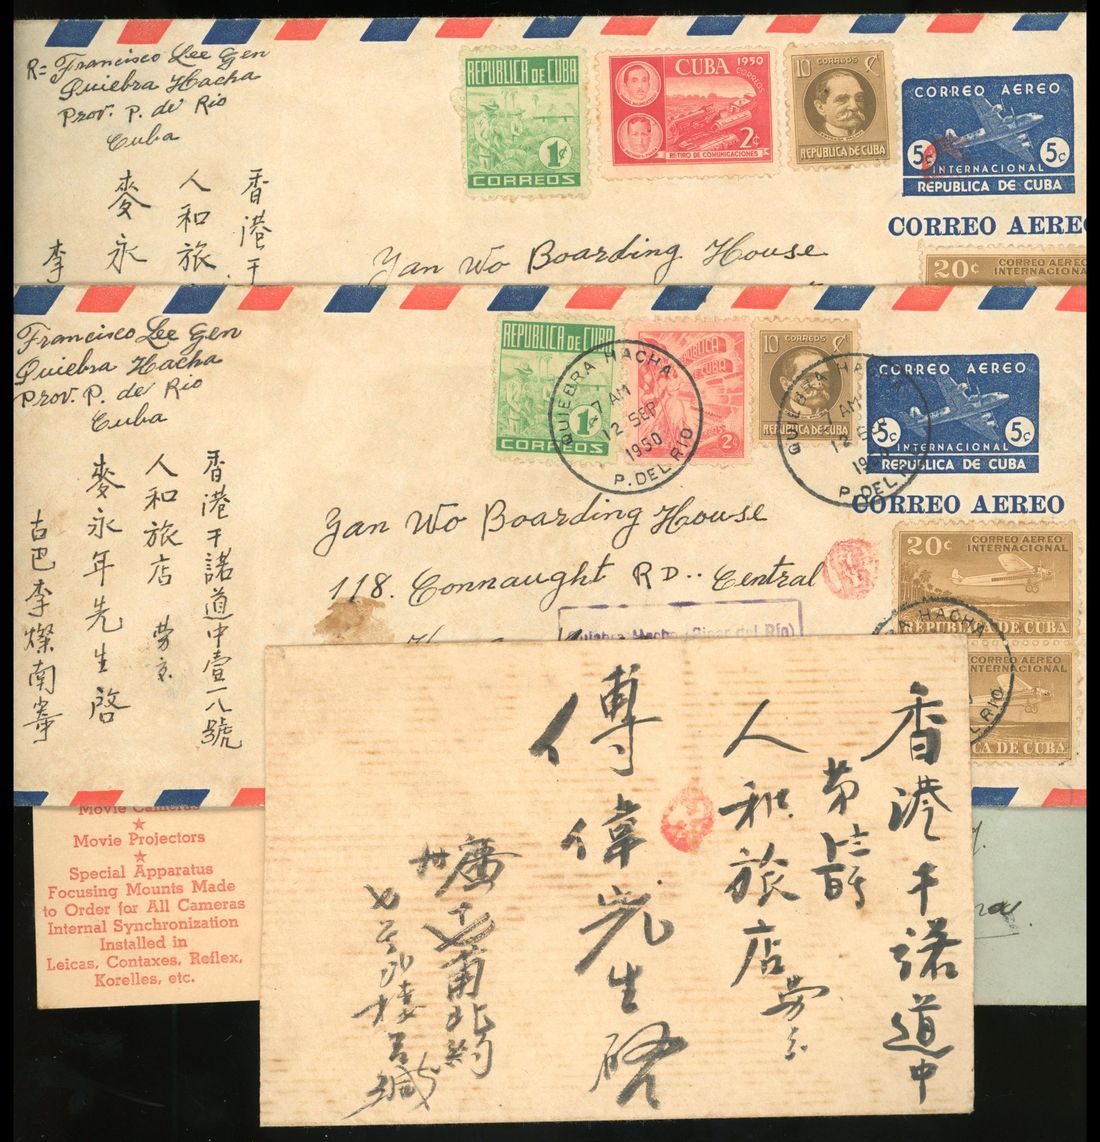 R= Francisco Lee Gen
Quiebra Hacha
Prov. P. de Rio
Cuba
香港干
人和旅
麥永
李
REPUBLICA DE CUBA
1¢
CORREOS
CUBA
1950
CORREOS
2¢
RETIRO DE COMUNICACIONES
10 CORREOS ¢
REPUBLICA DE CUBA
CORREO AEREO
5c 5c
INTERNACIONAL
REPUBLICA DE CUBA
CORREO AEREO
20¢ CORREO AEREO
INTERNACIONAL
Yan Wo Boarding House
Francisco Lee Gen
Quiebra Hacha
Prov. P. de Rio
Cuba
香港干諾道中壹一八號
人和旅店 勞京
麥永年先生啓
古巴李燦南寄
REPUBLICA DE CUBA
1¢
CORREOS
REPUBLICA
CUBA
2¢
10 CORREOS ¢
REPUBLICA DE CUBA
QUIEBRA HACHA
7 AM
12 SEP
1950
P. DEL RIO
QUIEBRA HACHA
AM
12
P. DEL
CORREO AEREO
5c 5c
INTERNACIONAL
REPUBLICA DE CUBA
CORREO AEREO
20¢ CORREO AEREO
INTERNACIONAL
REPUBLICA DE CUBA
HACHA
CORREO AEREO
INTERNACIONAL
CA DE CUBA
RIO
Yan Wo Boarding House
118. Connaught RD.. Central
Movie Cameras
Movie Projectors
Special Apparatus
Focusing Mounts Made
to Order for All Cameras
Internal Synchronization
Installed in
Leicas, Contaxes, Reflex,
Korelles, etc.
香港干諾道中
人和旅店 勞京
傅偉先生啓